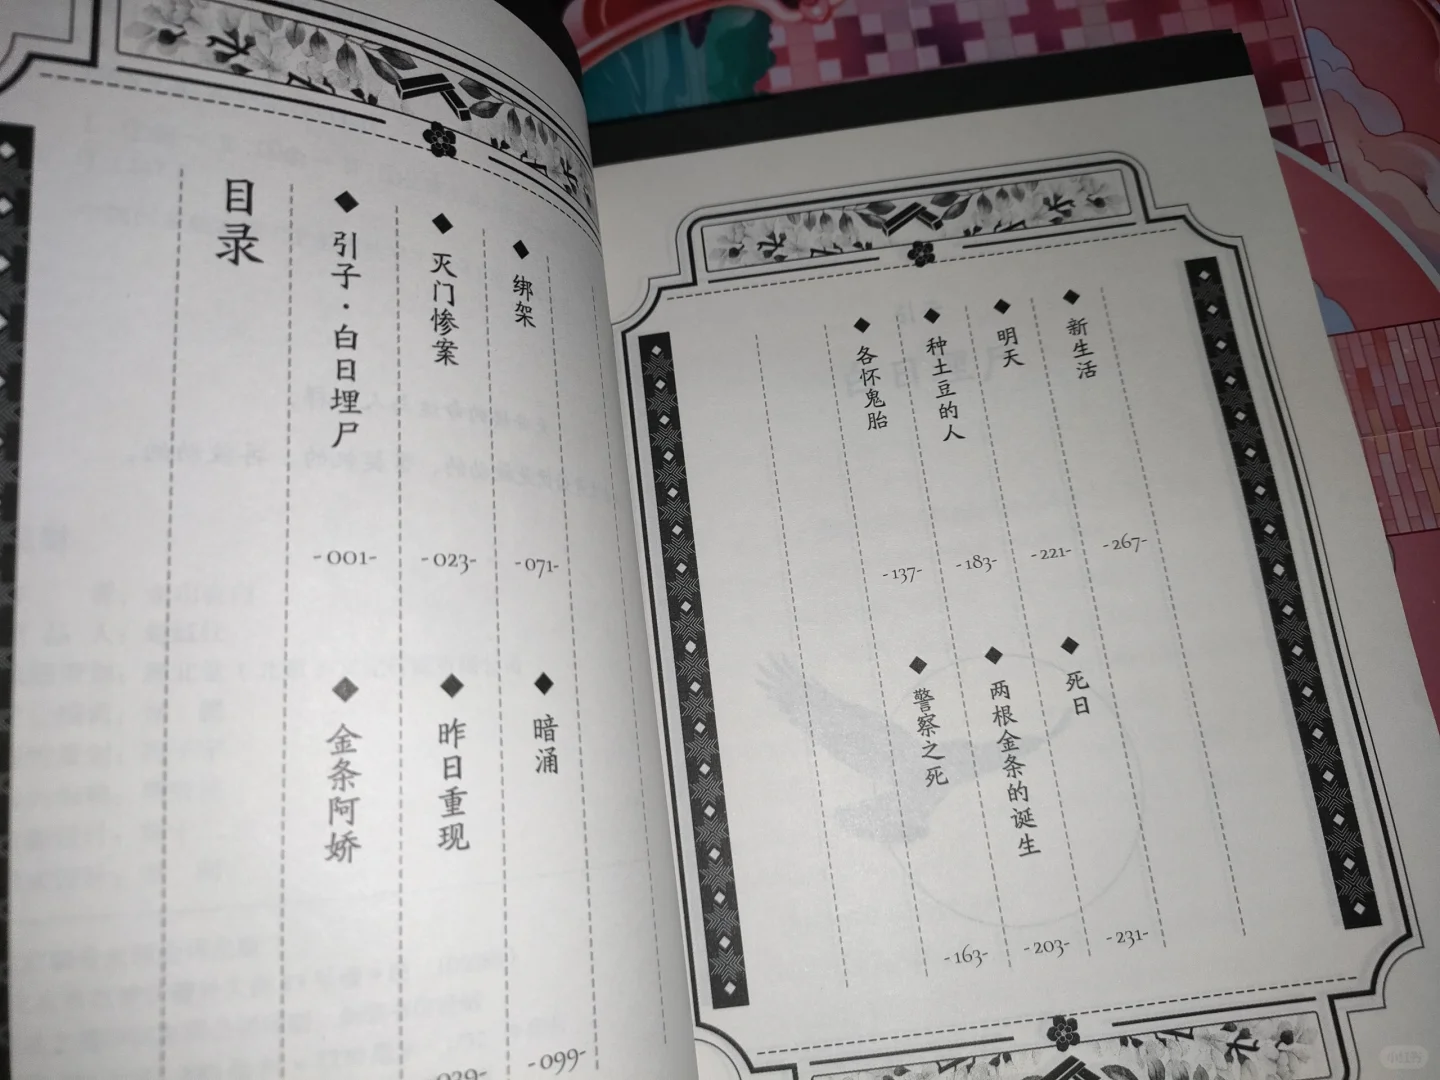 目录
引子·白日埋尸
-001-
金条阿娇
灭门惨案
-023-
昨日重现
绑架
-071-
暗涌
-099-
各怀鬼胎
-137-
警察之死
-163-
种土豆的人
-183-
两根金条的诞生
-203-
明天
-221-
死日
-231-
新生活
-267-
小红书